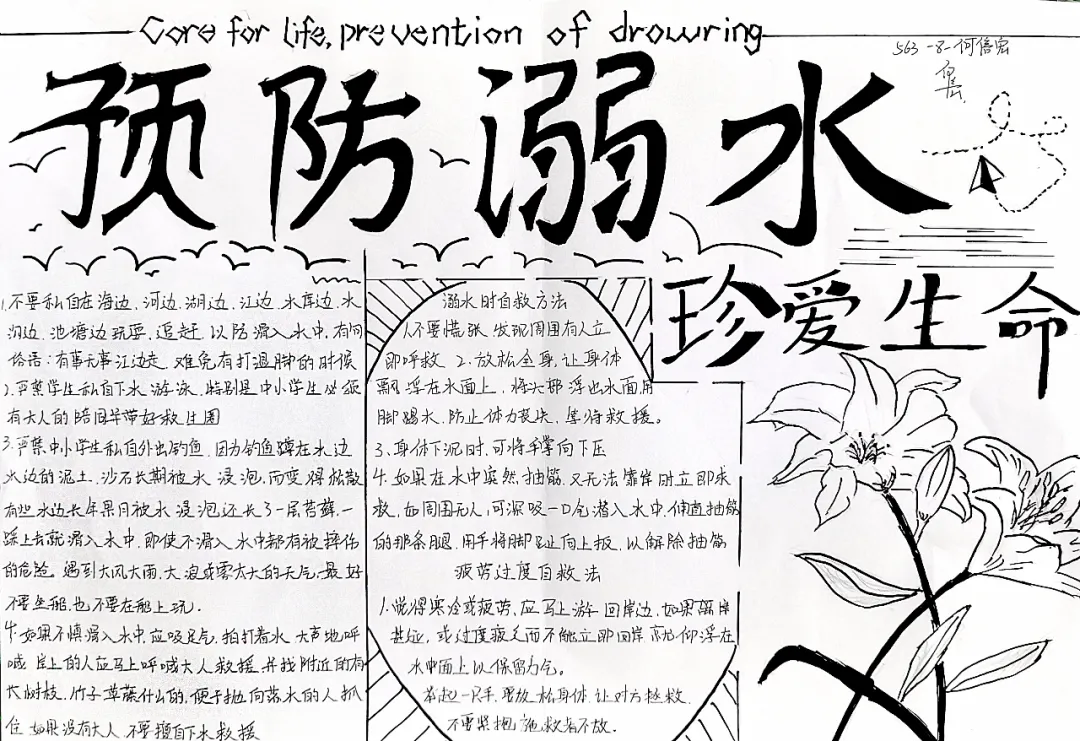 Core for life, prevention of drowring
563-8-何倍宏
预防溺水
珍爱生命
1.不要私自在海边、河边、湖边、江边、水库边、水
沟边、池塘边玩耍、追赶、以防滑入水中,有句
俗语:有事无事江边走、难免有打湿脚的时候
2.严禁学生私自下水游泳,特别是中小学生必须
有大人的陪同并带好救生圈
3.严禁中小学生私自外出钓鱼,因为钓鱼蹲在水边
水边的泥土、沙石长期被水浸泡,而变得松散
有些水边长年累月被水浸泡还长了一层苔藓,一
踩上去就滑入水中,即使不滑入水中都有被摔伤
的危险。遇到大风大雨、大浪或雾太大的天气,最好
不要坐船,也不要在船上玩.
4.如果不慎滑入水中,应吸足气,拍打着水大声地呼
喊岸上的人应马上呼喊大人救援,并找附近的有
长树枝、竹子草藤什么的,便于抛向落水的人抓
住如果没有大人,不要擅自下水救援
溺水时自救方法
1.不要慌张,发现周围有人立
即呼救 2.放松全身,让身体
飘浮在水面上,将头部浮出水面用
脚踢水,防止体力丧失,等待救援。
3.身体下沉时,可将手掌向下压
4.如果在水中突然抽筋,又无法靠岸时立即求
救,如周围无人,可深吸一口气潜入水中,伸直抽筋
的那条腿,用手将脚趾向上扳,以解除抽筋
疲劳过度自救法
1.觉得寒冷或疲劳,应马上游回岸边,如果离岸
甚远,或过度疲乏而不能立即回岸,就仰浮在
水中面上以保留力气。
举起一只手,放松身体,让对方拯救,
不要紧抱施救者不放.